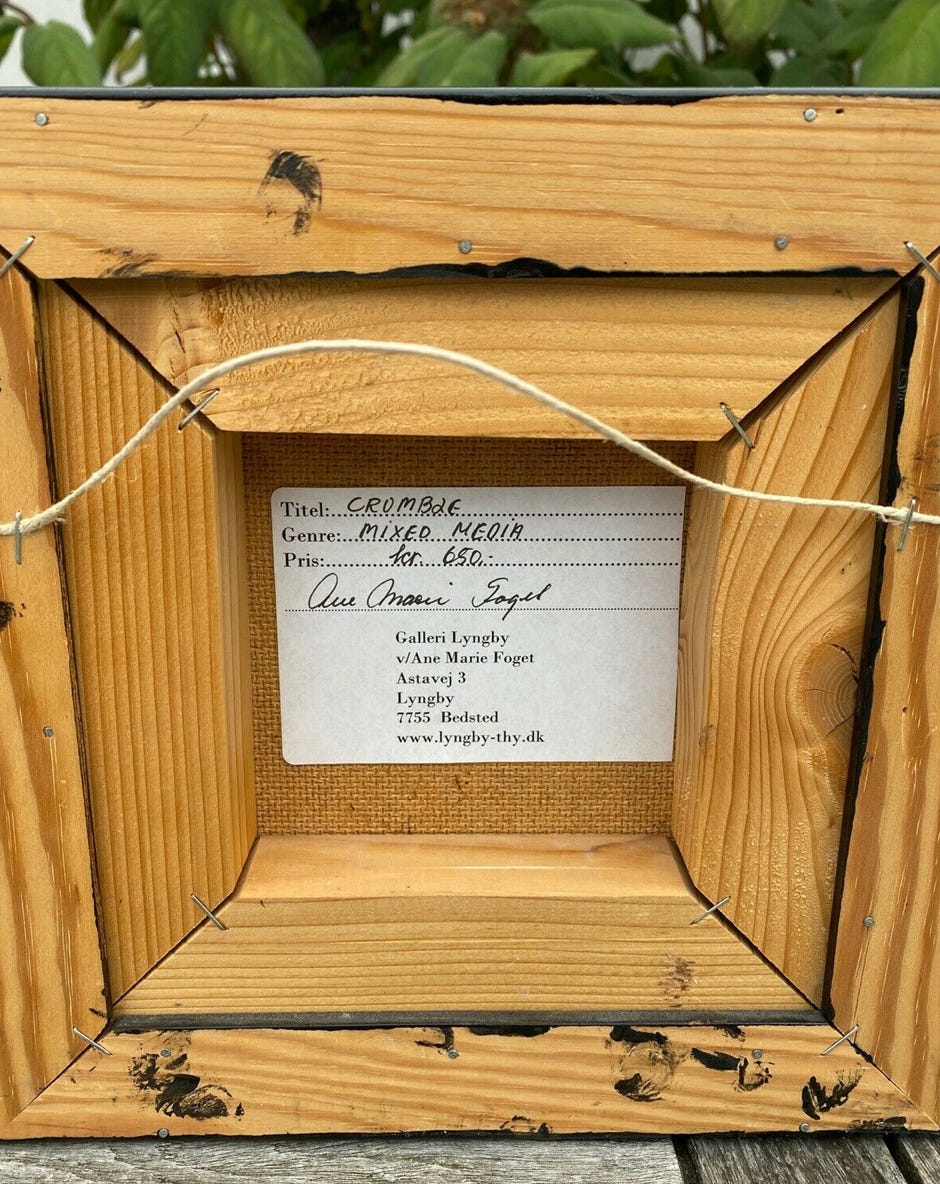 Titel: CROMBIE
Genre: MIXED MEDIA
Pris: kr. 650,-
Ane Marie Foget
Galleri Lyngby
v/Ane Marie Foget
Astavej 3
Lyngby
7755 Bedsted
www.lyngby-thy.dk